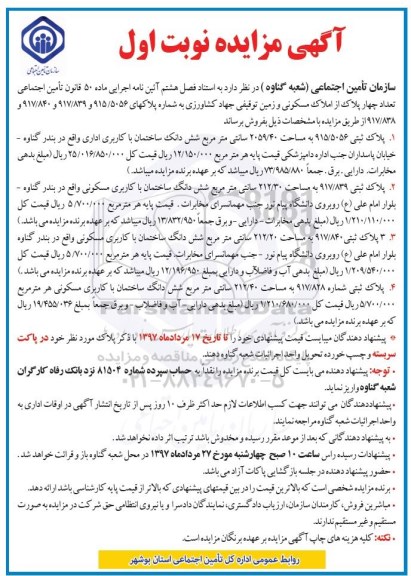 آگهی مزایده نوبت اول
سازمان تأمین اجتماعی
سازمان تأمین اجتماعی (شعبه گناوه) در نظر دارد به استناد فصل هشتم آئین نامه اجرایی ماده ۵۰ قانون تأمین اجتماعی
تعداد چهار پلاک از املاک مسکونی و زمین توقیفی جهاد کشاورزی به شماره پلاکهای ۹۱۵/۵۰۵۶ و ۹۱۷/۸۳۹ و ۹۱۷/۸۴۰ و
۹۱۷/۸۳۸ را از طریق مزایده با مشخصات ذیل بفروش برساند
۱. پلاک ثبتی ۹۱۵/۵۰۵۶ به مساحت ۲۰۵۹/۴۰ سانتی متر مربع شش دانگ ساختمان با کاربری اداری واقع در بندر گناوه -
خیابان پاسداران جنب اداره دامپزشکی قیمت پایه هر متر مربع ۱۲/۱۵۰/۰۰۰ ریال قیمت کل ۲۵/۰۱۶/۸۵۰/۰۰۰ ریال (مبلغ بدهی
مخابرات، دارایی، برق، جمعاً ۷۳/۹۸۵/۸۸۰ ریال میباشد که بر عهده برنده مزایده میباشد.)
۲. پلاک ثبتی ۹۱۷/۸۳۹ به مساحت ۲۱۲/۳۰ سانتی متر مربع شش دانگ ساختمان با کاربری مسکونی واقع در بندر گناوه -
بلوار امام علی (ع) روبروی دانشگاه پیام نور - جنب مهمانسرای مخابرات. قیمت پایه هر مترمربع ۵/۷۰۰/۰۰۰ ریال قیمت کل
۱/۲۱۰/۱۱۰/۰۰۰ ریال (مبلغ بدهی مخابرات - دارایی - وبرق جمعاً ۱۳/۸۳۲/۹۵۰ ریال میباشد که بر عهده برنده مزایده می باشد.)
۳. ۳ پلاک ثبتی ۹۱۷/۸۴۰ به مساحت ۲۱۲/۲۰ سانتی متر مربع شش دانگ ساختمان با کاربری مسکونی واقع در بندر گناوه -
بلوار امام علی (ع) روبروی دانشگاه پیام نور - جنب مهمانسرای مخابرات قیمت پایه هر مترمربع ۵/۷۰۰/۰۰۰ ریال قیمت کل
۱/۲۰۹/۵۴۰/۰۰۰ ریال (مبلغ بدهی آب و فاضلاب و دارایی بمبلغ ۱۲/۱۹۶/۹۵۰ ریال میباشد که بر عهده برنده مزایده می باشد.)
۴. پلاک ثبتی شماره ۹۱۷/۸۲۸ به مساحت ۲۱۲/۴۰ سانتی متر مربع شش دانگ ساختمان با کاربری مسکونی هر مترمربع
۵/۷۰۰/۰۰۰ ریال قیمت کل ۱/۲۱۰/۶۸۰/۰۰۰ ریال (مبلغ بدهی دارایی - آب و فاضلاب - وبرق جمعاً بمبلغ ۱۹/۴۵۵/۰۳۶ ریال می باشد
که بر عهده برنده مزایده می باشد.)
* پیشنهاد دهندگان میبایست قیمت پیشنهادی خود را تا تاریخ ۱۷ مردادماه ۱۳۹۷ با ذکر پلاک مورد نظر خود در پاکت
سربسته و چسب خورده تحویل واحد اجرائیات شعبه گناوه دهند.
• توجه: پیشنهاد دهنده می بایست کل قیمت برنده مزایده را نقداً به حساب سپرده شماره ۸۱۵۰۴ نزد بانک رفاه کارگران
شعبه گناوه واریز نماید.
• پیشنهاددهندگان می توانند جهت کسب اطلاعات لازم حداکثر ظرف ۱۰ روز پس از تاریخ انتشار آگهی در اوقات اداری به
واحد اجرائیات شعبه گناوه مراجعه نمایند.
- به پیشنهاد دهندگانی که بعد از موعد مقرر رسیده و مخدوش باشد ترتیب اثر داده نخواهد شد.
- پیشنهادات رسیده راس ساعت ۱۰ صبح چهارشنبه مورخ ۲۷ مردادماه ۱۳۹۷ در محل شعبه گناوه باز و قرائت خواهد شد.
• حضور پیشنهاد دهنده در جلسه بازگشایی پاکات آزاد می باشد.
• برنده مزایده شخصی است که بالاترین قیمت را در بین قیمتهای پیشنهادی که بالاتر از قیمت پایه کارشناسی باشد ارائه دهد.
• مباشرین فروش، کارمندان سازمان، ارزیاب دادگستری، نمایندگان دادسرا و یا نیروی انتظامی حق شرکت در مزایده به صورت
مستقیم و غیر مستقیم ندارند.
• نکته: کلیه هزینه های چاپ آگهی مزایده بر عهده برنگان مزایده است.
روابط عمومی اداره کل تأمین اجتماعی استان بوشهر
۰۲۱-۸۸۳۴۹۶۷۰-۵